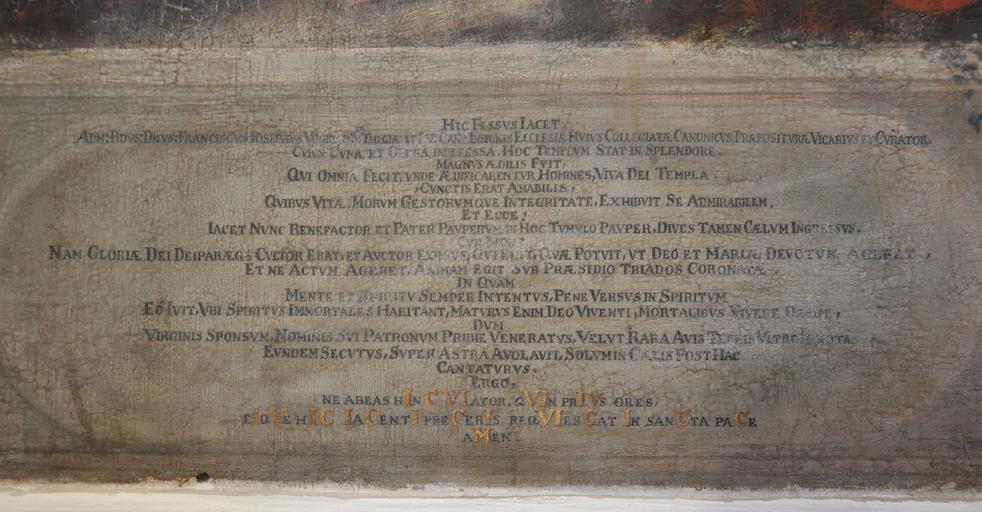 HIC FESSVS IACET
ADM: RDVS: DNVS: FRANCISCVS IOSEPHVS ECCLESIÆ HVIVS COLLEGIATÆ CANONICVS, PRÆPOSITVRÆ VICARIVS ET CVRATOR.
CVIVS CVRA ET OPERA INDEFESSA, HOC TEMPLVM STAT IN SPLENDORE.
MAGNVS ÆDILIS FVIT,
QVI OMNIA FECIT, VNDE ÆDIFICARENTVR HOMINES, VIVA DEI TEMPLA.
CVNCTIS ERAT AMABILIS,
QVIBVS VITÆ, MORVM GESTORVMQVE INTEGRITATE, EXHIBVIT SE ADMIRABILEM.
ET ECCE!
IACET NVNC BENEFACTOR ET PATER PAVPERVM IN HOC TVMVLO PAVPER, DIVES TAMEN CÆLVM INGRESSVS.
NAM GLORIÆ DEI DEIPARÆQ; CVLTOR ERAT, ET AVCTOR EXIMIVS, QVI FECIT, QVÆ POTVIT, VT DEO ET MARIÆ DEVOTVM
ET NE ACTVM AGERET, ANIMAM EGIT SVB PRÆSIDIO TRIADOS CORONATÆ.
IN QVAM
MENTE ET SPIRITV SEMPER INTENTVS, PENE VERSVS IN SPIRITVM
EO IVIT, VBI SPIRITVS IMMORTALES HABITANT, MATVRVS ENIM DEO VIVENTI, MORTALIBVS VIVERE
DVM
VIRGINIS SPONSVM, NOMINIS SVI PATRONVM PRIDIE VENERATVS, VELVT RARA AVIS
EVNDEM SECVTVS, SVPER ASTRA AVOLAVIT, SOLVM IN CÆLIS POST HAC
CANTATVRVS.
ERGO,
NE ABEAS HINC VIATOR, QVIN PRIVS ORES,
HIC IACENTI PRECERIS, REQVIESCAT IN SANCTA PACE
AMEN.